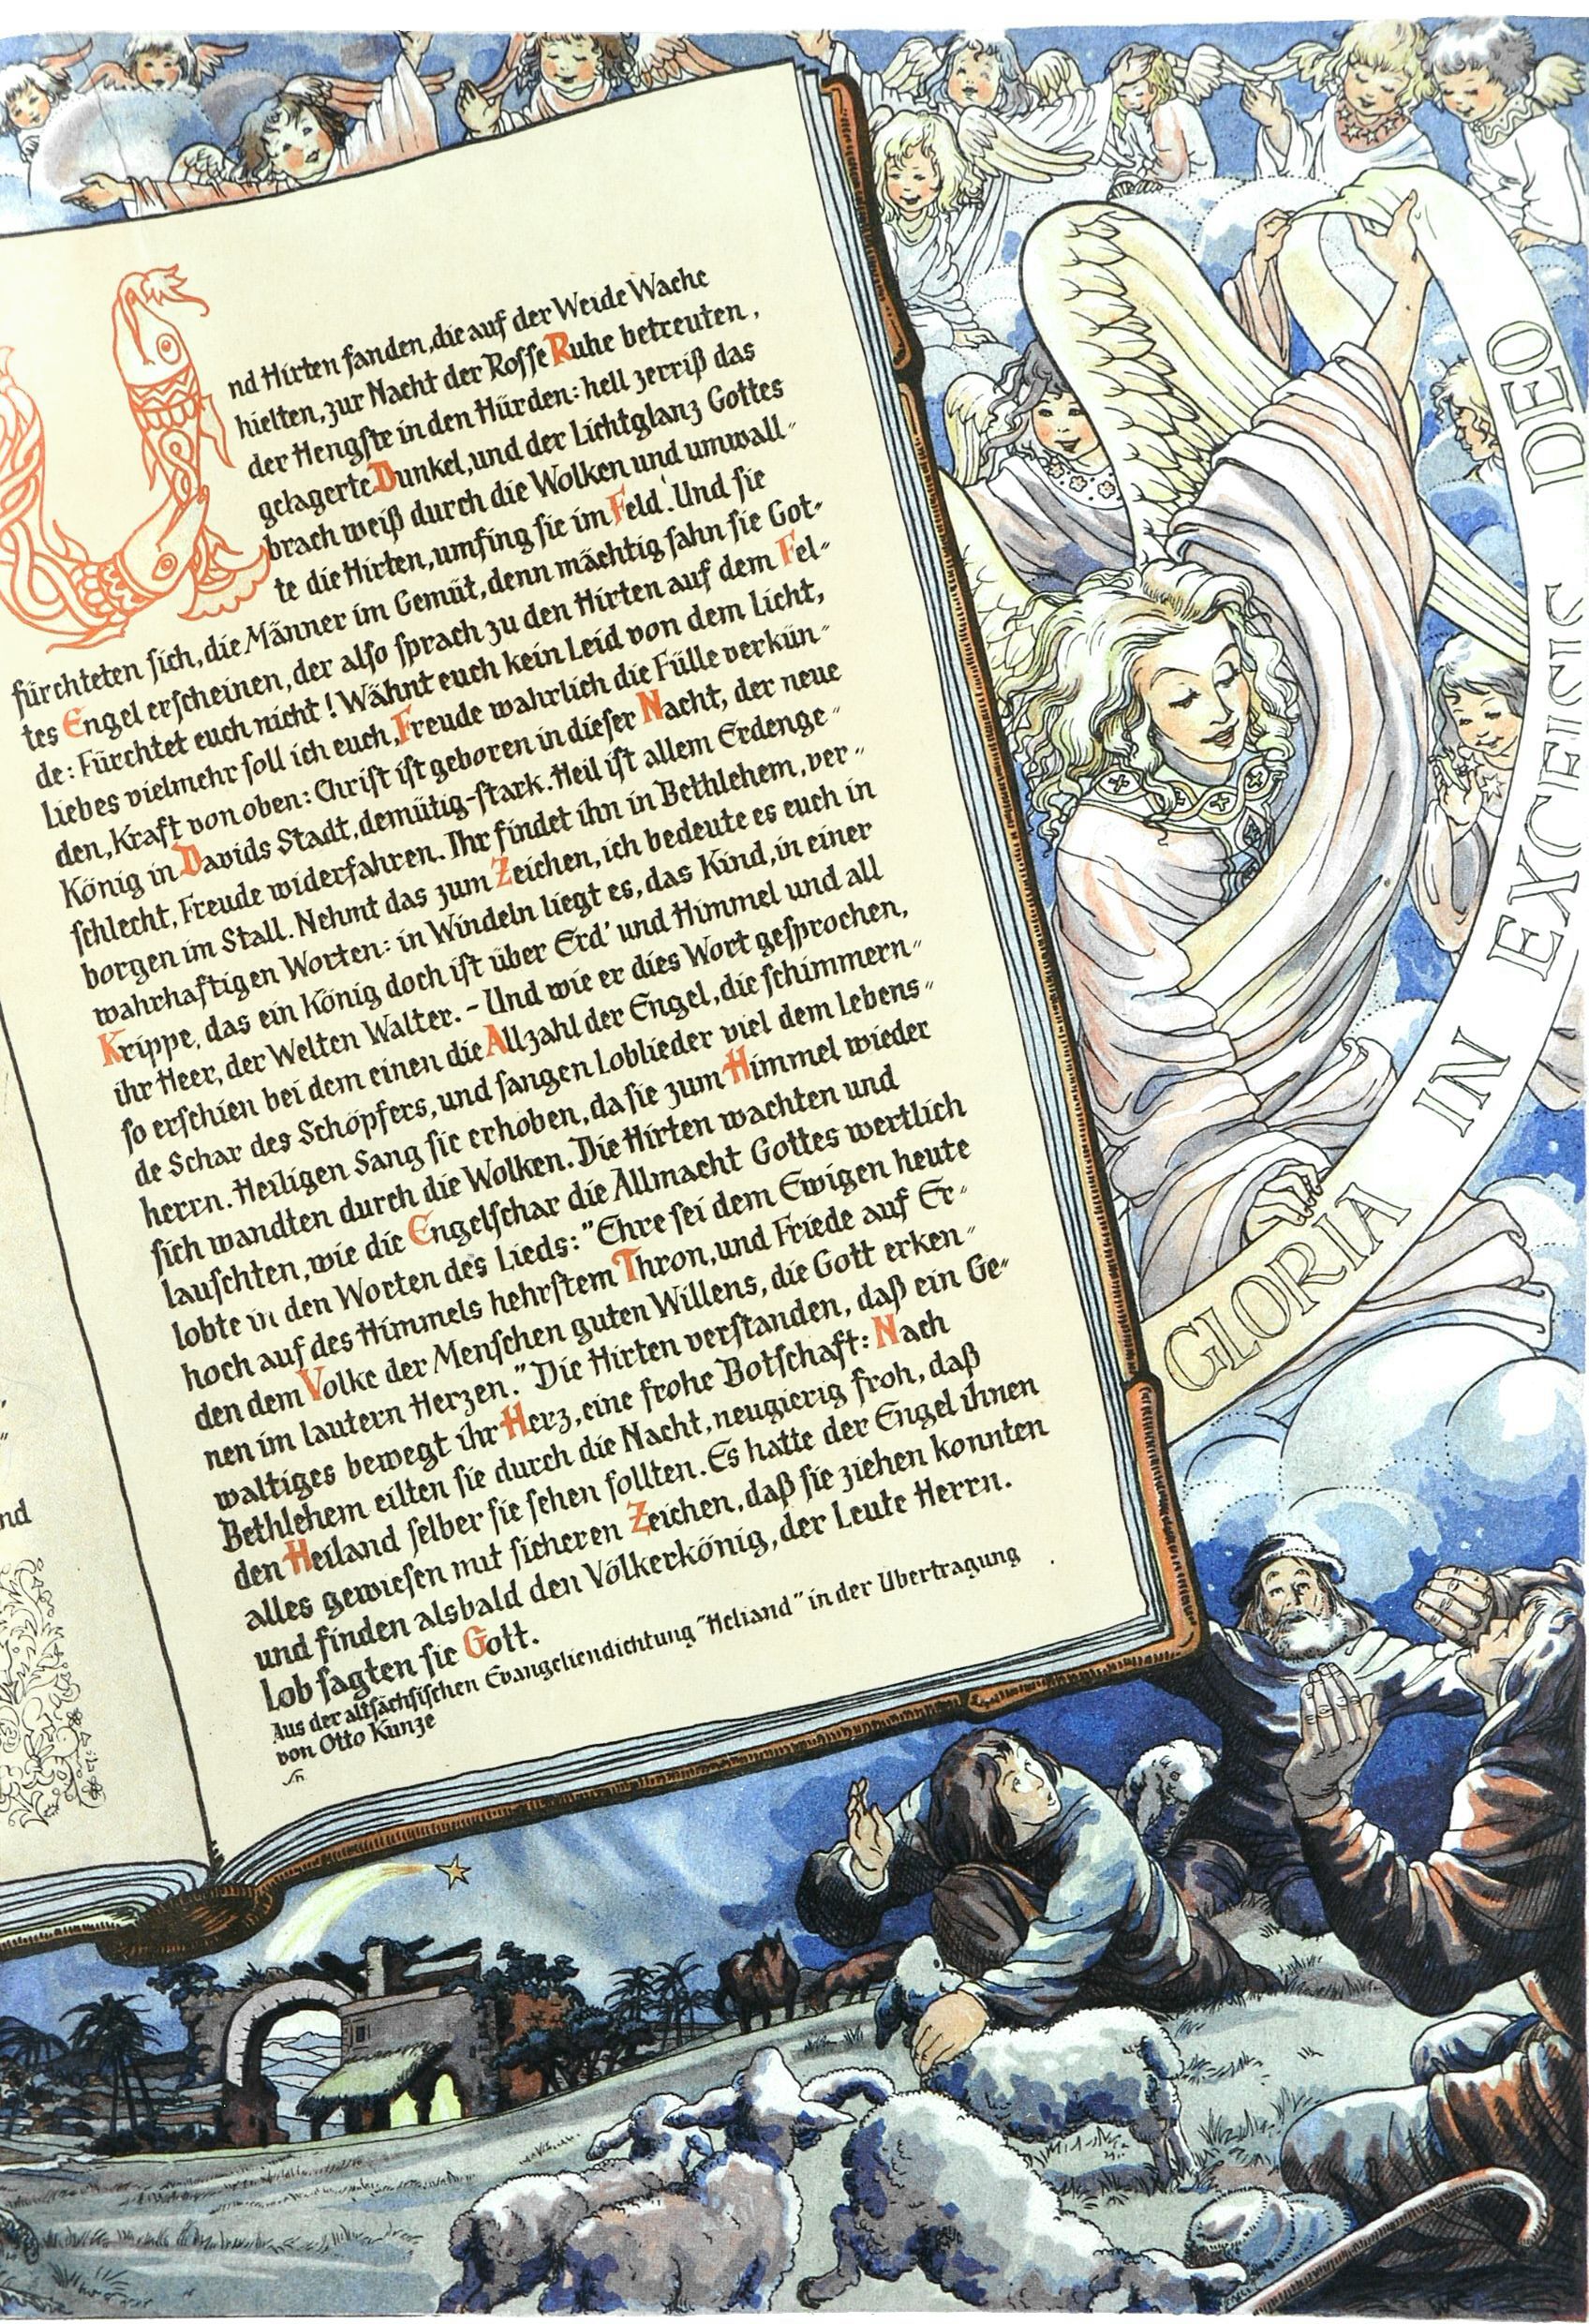 Und Hirten fanden, die auf der Weide Wache
hielten, zur Nacht der Roſſe Ruhe betreuten,
der Hengſte in den Hürden: hell zerriß das
gelagerte Dunkel, und der Lichtglanz Gottes
brach weiß durch die Wolken und umwall-
te die Hirten, umfing ſie im Feld. Und ſie
fürchteten ſich, die Männer im Gemüt, denn mächtig ſahn ſie Got-
tes Engel erſcheinen, der alſo ſprach zu den Hirten auf dem Fel-
de: Fürchtet euch nicht! Wähnt euch kein Leid von dem Licht,
Liebes vielmehr ſoll ich euch, Freude wahrlich die Fülle verkün-
den, Kraft von oben: Chriſt iſt geboren in dieſer Nacht, der neue
König in Davids Stadt, demütig-ſtark. Heil iſt allem Erdenge-
ſchlecht, Freude widerfahren. Ihr findet ihn in Bethlehem, ver-
borgen im Stall. Nehmt das zum Zeichen, ich bedeute es euch in
wahrhaftigen Worten: in Windeln liegt es, das Kind, in einer
Krippe, das ein König doch iſt über Erd' und Himmel und all
ihr Heer, der Welten Walter. - Und wie er dies Wort geſprochen,
ſo erſchien bei dem einen die Allzahl der Engel, die ſchimmern-
de Schar des Schöpfers, und ſangen Loblieder viel dem Lebens-
herrn. Heiligen Sang ſie erhoben, da ſie zum Himmel wieder
ſich wandten durch die Wolken. Die Hirten wachten und
lauſchten, wie die Engelſchar die Allmacht Gottes wertlich
lobte in den Worten des Lieds: "Ehre ſei dem Ewigen heute
hoch auf des Himmels hehrſtem Thron, und Friede auf Er-
den dem Volke der Menſchen guten Willens, die Gott erken-
nen im lautern Herzen." Die Hirten verſtanden, daß ein Ge-
waltiges bewegt ihr Herz, eine frohe Botſchaft: Nach
Bethlehem eilten ſie durch die Nacht, neugierig froh, daß
den Heiland ſelber ſie ſehen ſollten. Es hatte der Engel ihnen
alles gewieſen mit ſicheren Zeichen, daß ſie ziehen konnten
und finden alsbald den Völkerkönig, der Leute Herrn.
Lob ſagten ſie Gott.
Aus der altſächſiſchen Evangeliendichtung "Heliand" in der Übertragung
von Otto Kunze
nd
GLORIA IN EXCELSIS DEO